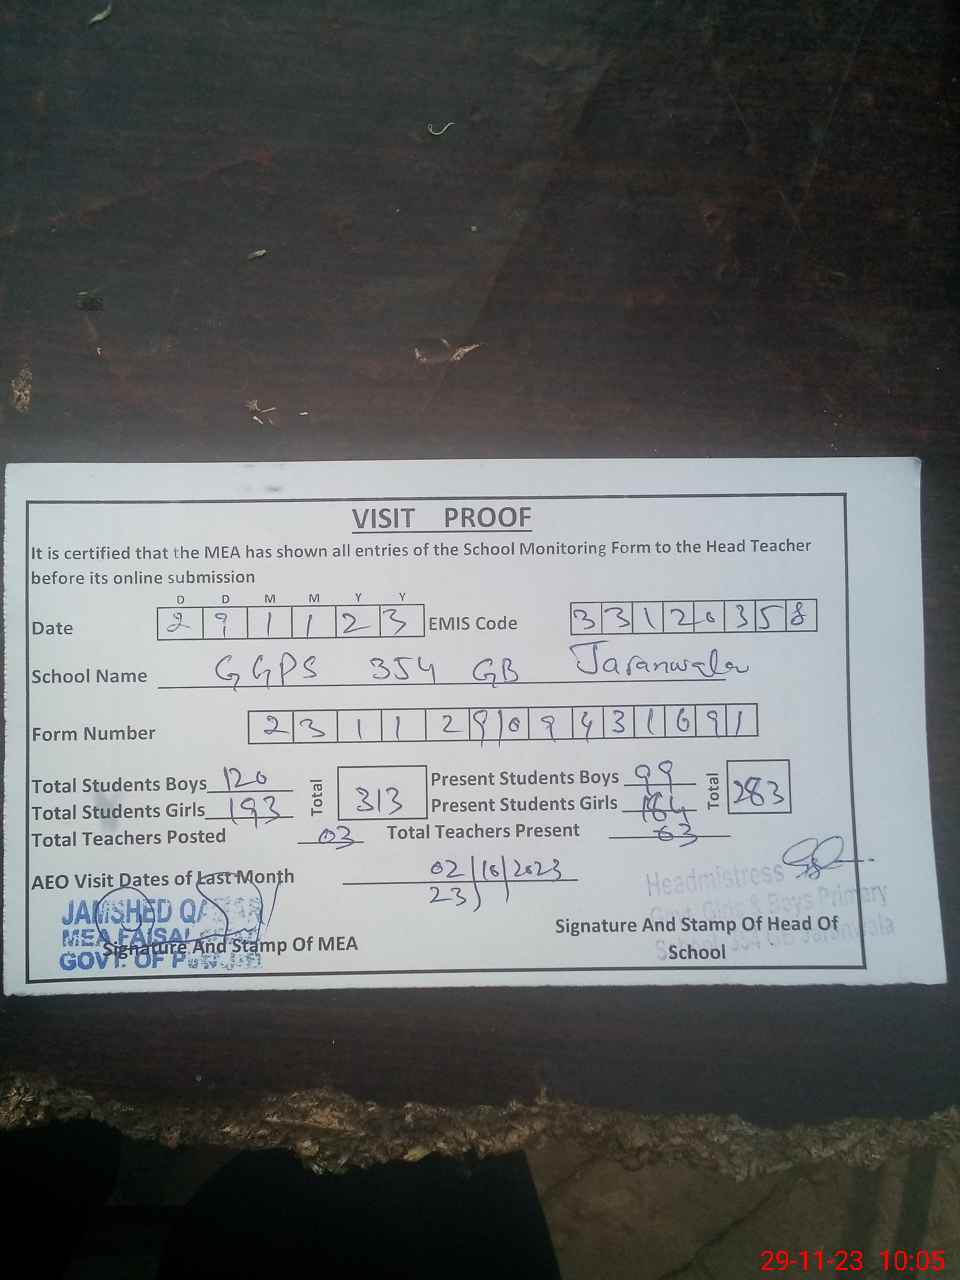 VISIT PROOF
It is certified that the MEA has shown all entries of the School Monitoring Form to the Head Teacher
before its online submission
D D M M Y Y
Date 2 9 1 1 2 3 EMIS Code 3 3 1 2 0 3 5 8
School Name GGPS 354 GB Jaranwala
Form Number 2 3 1 1 2 9 0 9 4 3 1 0 9 1
Total Students Boys 120 Total 313 Present Students Boys 99 Total 283
Total Students Girls 193 Present Students Girls 184
Total Teachers Posted 03 Total Teachers Present 03
AEO Visit Dates of Last Month 02/10/2023
23
Headmistress
JAMSHED
Govt. Girls & Boys Primary
MEA FAISAL
School 354 GB Jaranwala
GOVT. OF
Signature And Stamp Of MEA
Signature And Stamp Of Head Of
School
29-11-23 10:05